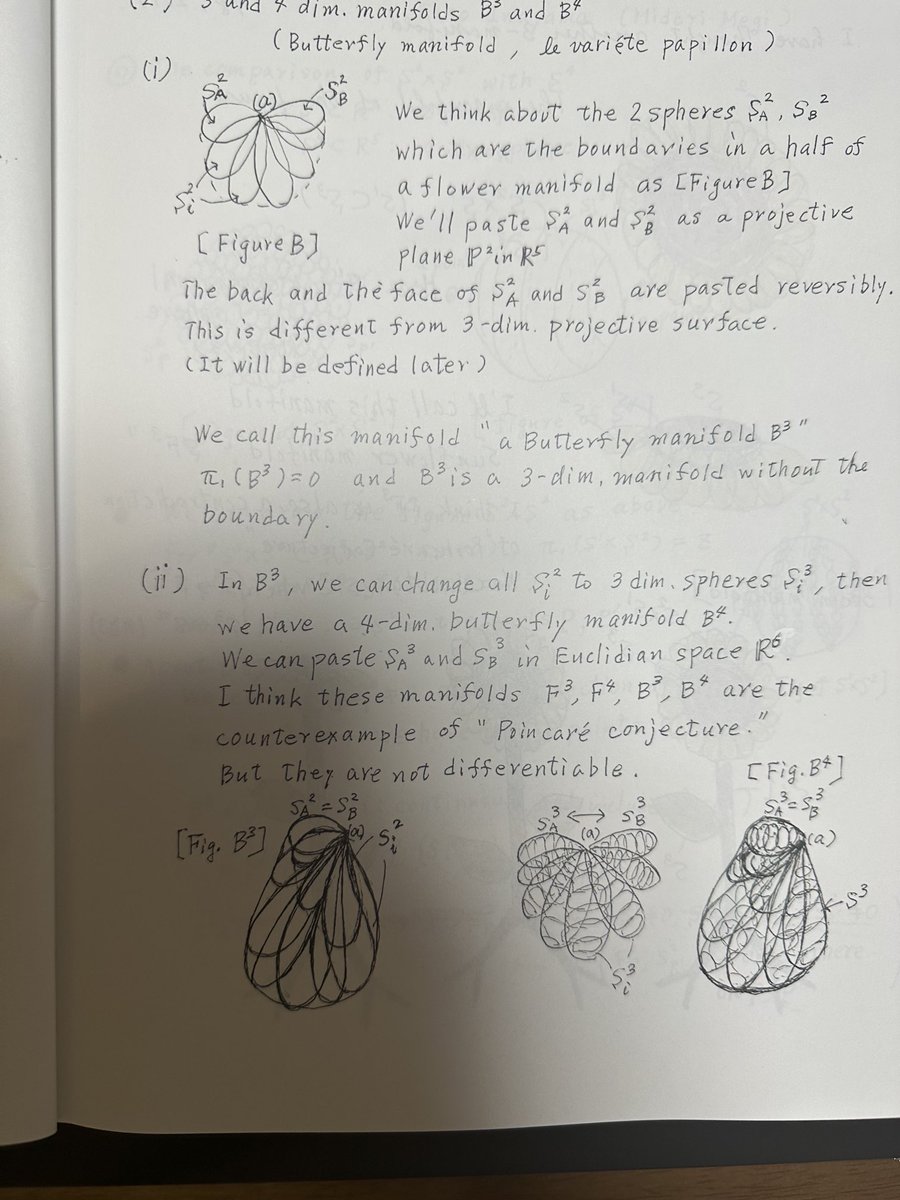 (2) 3 and 4 dim. manifolds B³ and B⁴
(Butterfly manifold, le variéte papillon)
(i)
S²_A (a) S²_B
S²_i
[Figure B]
We think about the 2 spheres S²_A, S_B²
which are the boundaries in a half of
a flower manifold as [Figure B]
We'll paste S²_A and S²_B as a projective
plane P² in R⁵
The back and the face of S²_A and S²_B are pasted reversibly.
This is different from 3-dim. projective surface.
(It will be defined later)
We call this manifold "a Butterfly manifold B³"
π₁(B³)=0 and B³ is a 3-dim, manifold without the
boundary.
(ii) In B³, we can change all S²_i to 3 dim. spheres S³_i, then
we have a 4-dim. butterfly manifold B⁴.
We can paste S_A³ and S_B³ in Euclidian space R⁶.
I think these manifolds F³, F⁴, B³, B⁴ are the
counterexample of "Poincaré conjecture."
But they are not differentiable.
[Fig. B⁴]
S_A²=S_B²
[Fig. B³] (a) S²_i
S_A³ ↔ S_B³
(a)
S³_i
S³_A=S³_B
(a)
S³